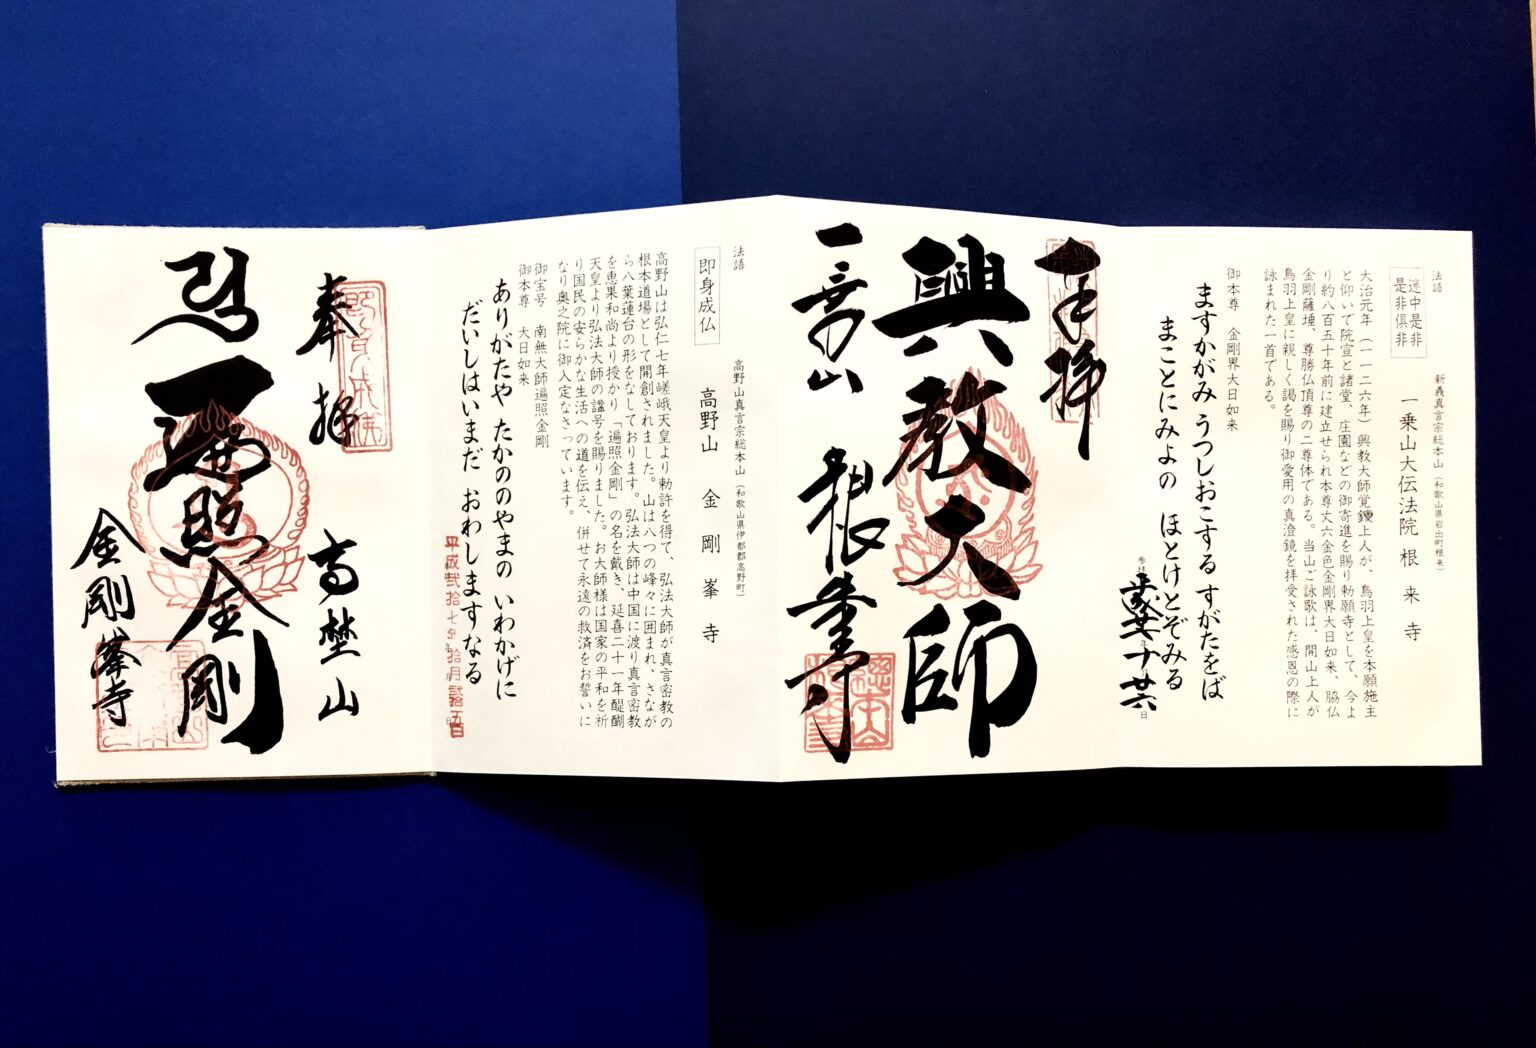 法語
迷中是非
是非俱非
新義真言宗総本山（和歌山県岩出町根来）
一乗山大伝法院 根来寺
大治元年（一一二六年）興教大師覚鑁上人が、鳥羽上皇を本願施主
と仰いで院宣と諸堂、庄園などの御寄進を賜り勅願寺として、今よ
り約八百五十年前に建立せられ本尊丈六金色金剛界大日如来、脇仏
金剛薩埵、尊勝仏頂尊の二尊体である。当山ご詠歌は、開山上人が
鳥羽上皇に親しく謁を賜り御愛用の真澄鏡を拝受された感恩の際に
詠まれた一首である。
御本尊 金剛界大日如来
ますかがみ うつしおこする すがたをば
まことにみよの ほとけとぞみる
年 十 廿六日
奉拝
興教大師
一乗山 根来寺
法語
即身成仏
高野山真言宗総本山（和歌山県伊都郡高野町）
高野山 金剛峯寺
高野山は弘仁七年嵯峨天皇より勅許を得て、弘法大師が真言密教の
根本道場として開創されました。山は八つの峰々に囲まれ、さなが
ら八葉蓮台の形をなしております。弘法大師は中国に渡り真言密教
を恵果和尚より授かり「遍照金剛」の名を戴き、延喜二十一年醍醐
天皇より弘法大師の諡号を賜りました。お大師様は国家の平和を祈
り国民の安らかな生活への道を伝え、併せて永遠の救済をお誓いに
なり奥之院に御入定なさっています。
御宝号 南無大師遍照金剛
御本尊 大日如来
ありがたや たかののやまの いわかげに
だいしはいまだ おわしますなる
平成弐拾七年拾月弐拾五日
奉拝 高埜山
遍照金剛
金剛峯寺